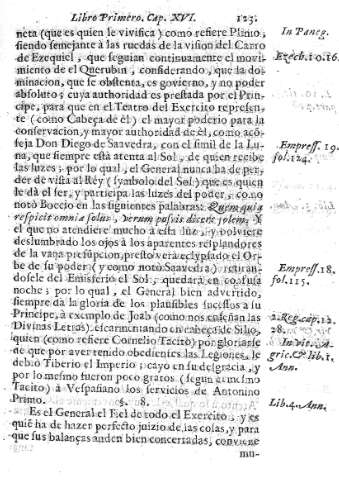 Libro Primero. Cap. XVI. 123.
neta (que es quien le vivifica) como refiere Plinio, In Paneg.
siendo semejante à las ruedas de la vision del Carro
de Ezequiel, que seguian continuamente el movi- Ezech. 10. 16.
miento de el Querubin, considerando, que la do-
minacion, que le obstenta, es govierno, y no poder
absoluto; cuya authoridad es prestada por el Prin-
cipe, para que en el Teatro del Exercito represen-
te (como Cabeça de èl) el mayor poderio para la
conservacion, y mayor authoridad de èl, como acō-
seja Don Diego de Saavedra, con el simil de la Lu- Empress. 19.
na, que siempre està atenta al Sol, de quien recibe fol. 124.
las luzes; por lo qual, el General nunca ha de per-
der de vista al Rey (symbolo del Sol) que es quien
le dà el ser, y participa las luzes del poder, como
notò Boccio en las siguientes palabras: Quem quia
respicit omnia solus, verum possis dicere solem. Y
el que no atendiere mucho à esta luz, y bolviere
deslumbrado los ojos à los aparentes resplandores
de la vana presumpcion, presto verà eclypsado el Or-
be de su poder (y como notò Saavedra) retiran- Empress. 18.
dosele del Emisferio el Sol, quedarà en confusa fol. 115.
noche; por lo qual, el General bien advertido,
siempre dà la gloria de los plausibles sucessos à su
Principe, à exemplo de Joab (como nos enseñan las 2. Reg. cap. 12.
Divinas Letras) escarmentando en cabeça de Silio, 28.
quien (como refiere Cornelio Tacito) por gloriarse In vit. A-
de que por aver tenido obedientes las Legiones, le gric. & lib. 1.
debiò Tiberio el Imperio cayo en su desgracia, y Ann.
por lo mesmo fueron poco gratos (segun el mesmo
Tacito) à Vespasiano los servicios de Antonino Lib. 4. Ann.
Primo. §. 8.
Es el General el Fiel de todo el Exercito, y es
quiē ha de hazer perfecto juizio de las cosas, y para
que sus balanças anden bien concertadas, conviene
mu-